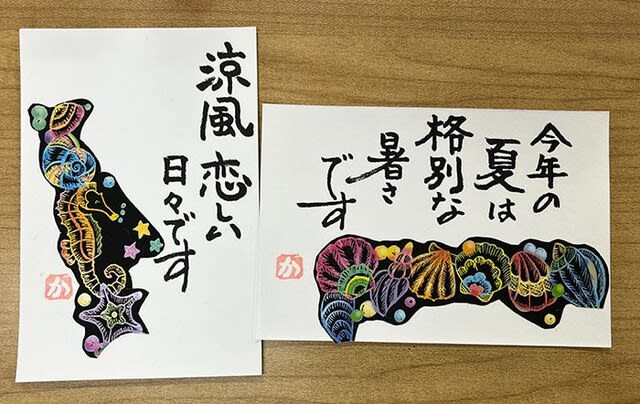 涼風恋しい
日々です
か
今年の
夏は
格別な
暑さ
です
か